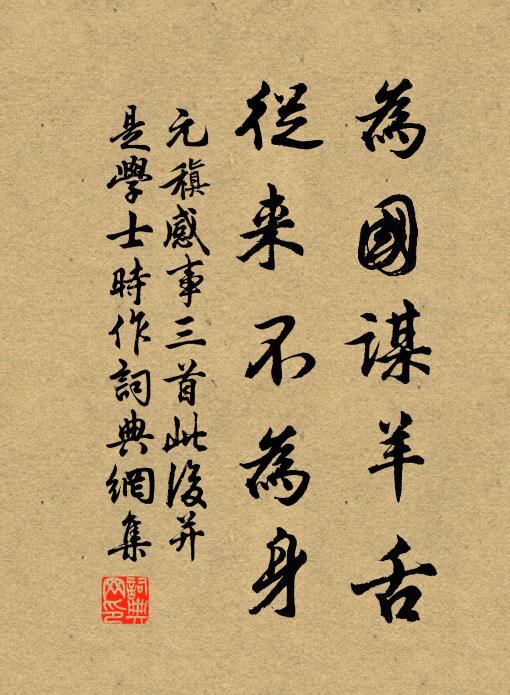 為國謀羊舌
從来不為身
元稹感事三首此後并
是學士時作詞典網集
詞典網印